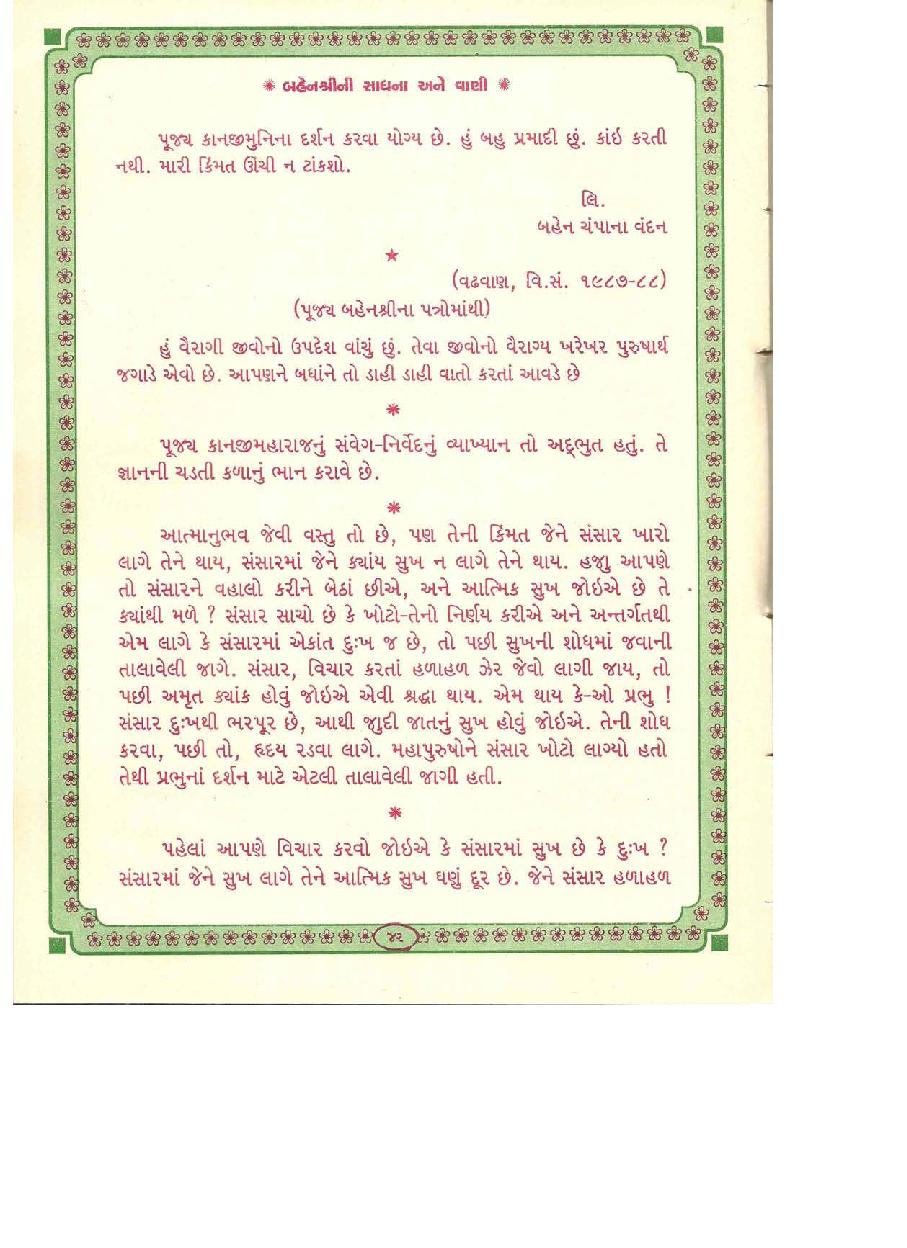 ✷ બહેનશ્રીની સાધના અને વાણી ✷
પૂજ્ય કાનજીમુનિના દર્શન કરવા યોગ્ય છે. હું બહુ પ્રમાદી છું. કાંઇ કરતી
નથી. મારી કિંમત ઊંચી ન ટાંકશો.
લિ.
બહેન ચંપાના વંદન
★
(વઢવાણ, વિ.સં. ૧૯૮૭-૮૮)
(પૂજ્ય બહેનશ્રીના પત્રોમાંથી)
હું વૈરાગી જીવોનો ઉપદેશ વાંચું છું. તેવા જીવોનો વૈરાગ્ય ખરેખર પુરુષાર્થ
જગાડે એવો છે. આપણને બધાંને તો ડાહી ડાહી વાતો કરતાં આવડે છે
✷
પૂજ્ય કાનજીમહારાજનું સંવેગ-નિર્વેદનું વ્યાખ્યાન તો અદ્ભુત હતું. તે
જ્ઞાનની ચડતી કળાનું ભાન કરાવે છે.
✷
આત્માનુભવ જેવી વસ્તુ તો છે, પણ તેની કિંમત જેને સંસાર ખારો
લાગે તેને થાય, સંસારમાં જેને ક્યાંય સુખ ન લાગે તેને થાય. હજુ આપણે
તો સંસારને વહાલો કરીને બેઠાં છીએ, અને આત્મિક સુખ જોઇએ છે તે
ક્યાંથી મળે ? સંસાર સાચો છે કે ખોટો-તેનો નિર્ણય કરીએ અને અન્તર્ગતથી
એમ લાગે કે સંસારમાં એકાંત દુઃખ જ છે, તો પછી સુખની શોધમાં જવાની
તાલાવેલી જાગે. સંસાર, વિચાર કરતાં હળાહળ ઝેર જેવો લાગી જાય, તો
પછી અમૃત ક્યાંક હોવું જોઇએ એવી શ્રદ્ધા થાય. એમ થાય કે-ઓ પ્રભુ !
સંસાર દુઃખથી ભરપૂર છે, આથી જુદી જાતનું સુખ હોવું જોઇએ. તેની શોધ
કરવા, પછી તો, હૃદય રડવા લાગે. મહાપુરુષોને સંસાર ખોટો લાગ્યો હતો
તેથી પ્રભુનાં દર્શન માટે એટલી તાલાવેલી જાગી હતી.
✷
પહેલાં આપણે વિચાર કરવો જોઇએ કે સંસારમાં સુખ છે કે દુઃખ ?
સંસારમાં જેને સુખ લાગે તેને આત્મિક સુખ ઘણું દૂર છે. જેને સંસાર હળાહળ
૪૨